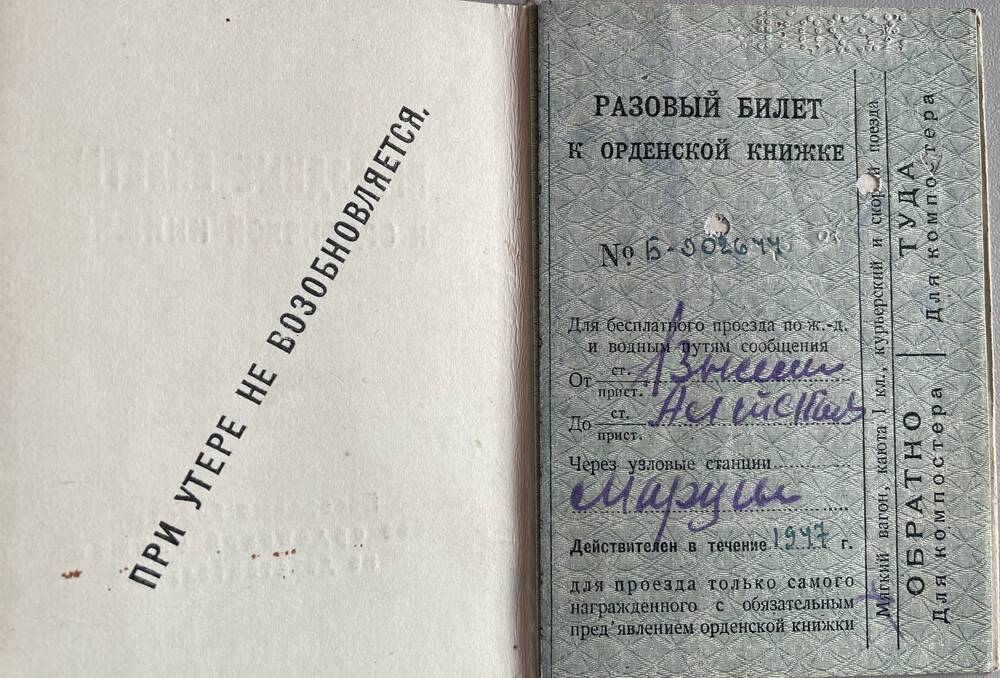 ПРИ УТЕРЕ НЕ ВОЗОБНОВЛЯЕТСЯ.
РАЗОВЫЙ БИЛЕТ
К ОРДЕНСКОЙ КНИЖКЕ
№ Б-302644
Для бесплатного проезда по ж.-д.
и водным путям сообщения
От ст. прист.
До ст. прист.
Через узловые станции
Действителен в течение 1947 г.
для проезда только самого
награжденного с обязательным
пред'явлением орденской книжки
Мягкий вагон, каюта I кл., курьерский и скорый поезда
ОБРАТНО
Для компостера
ТУДА
Для компостера